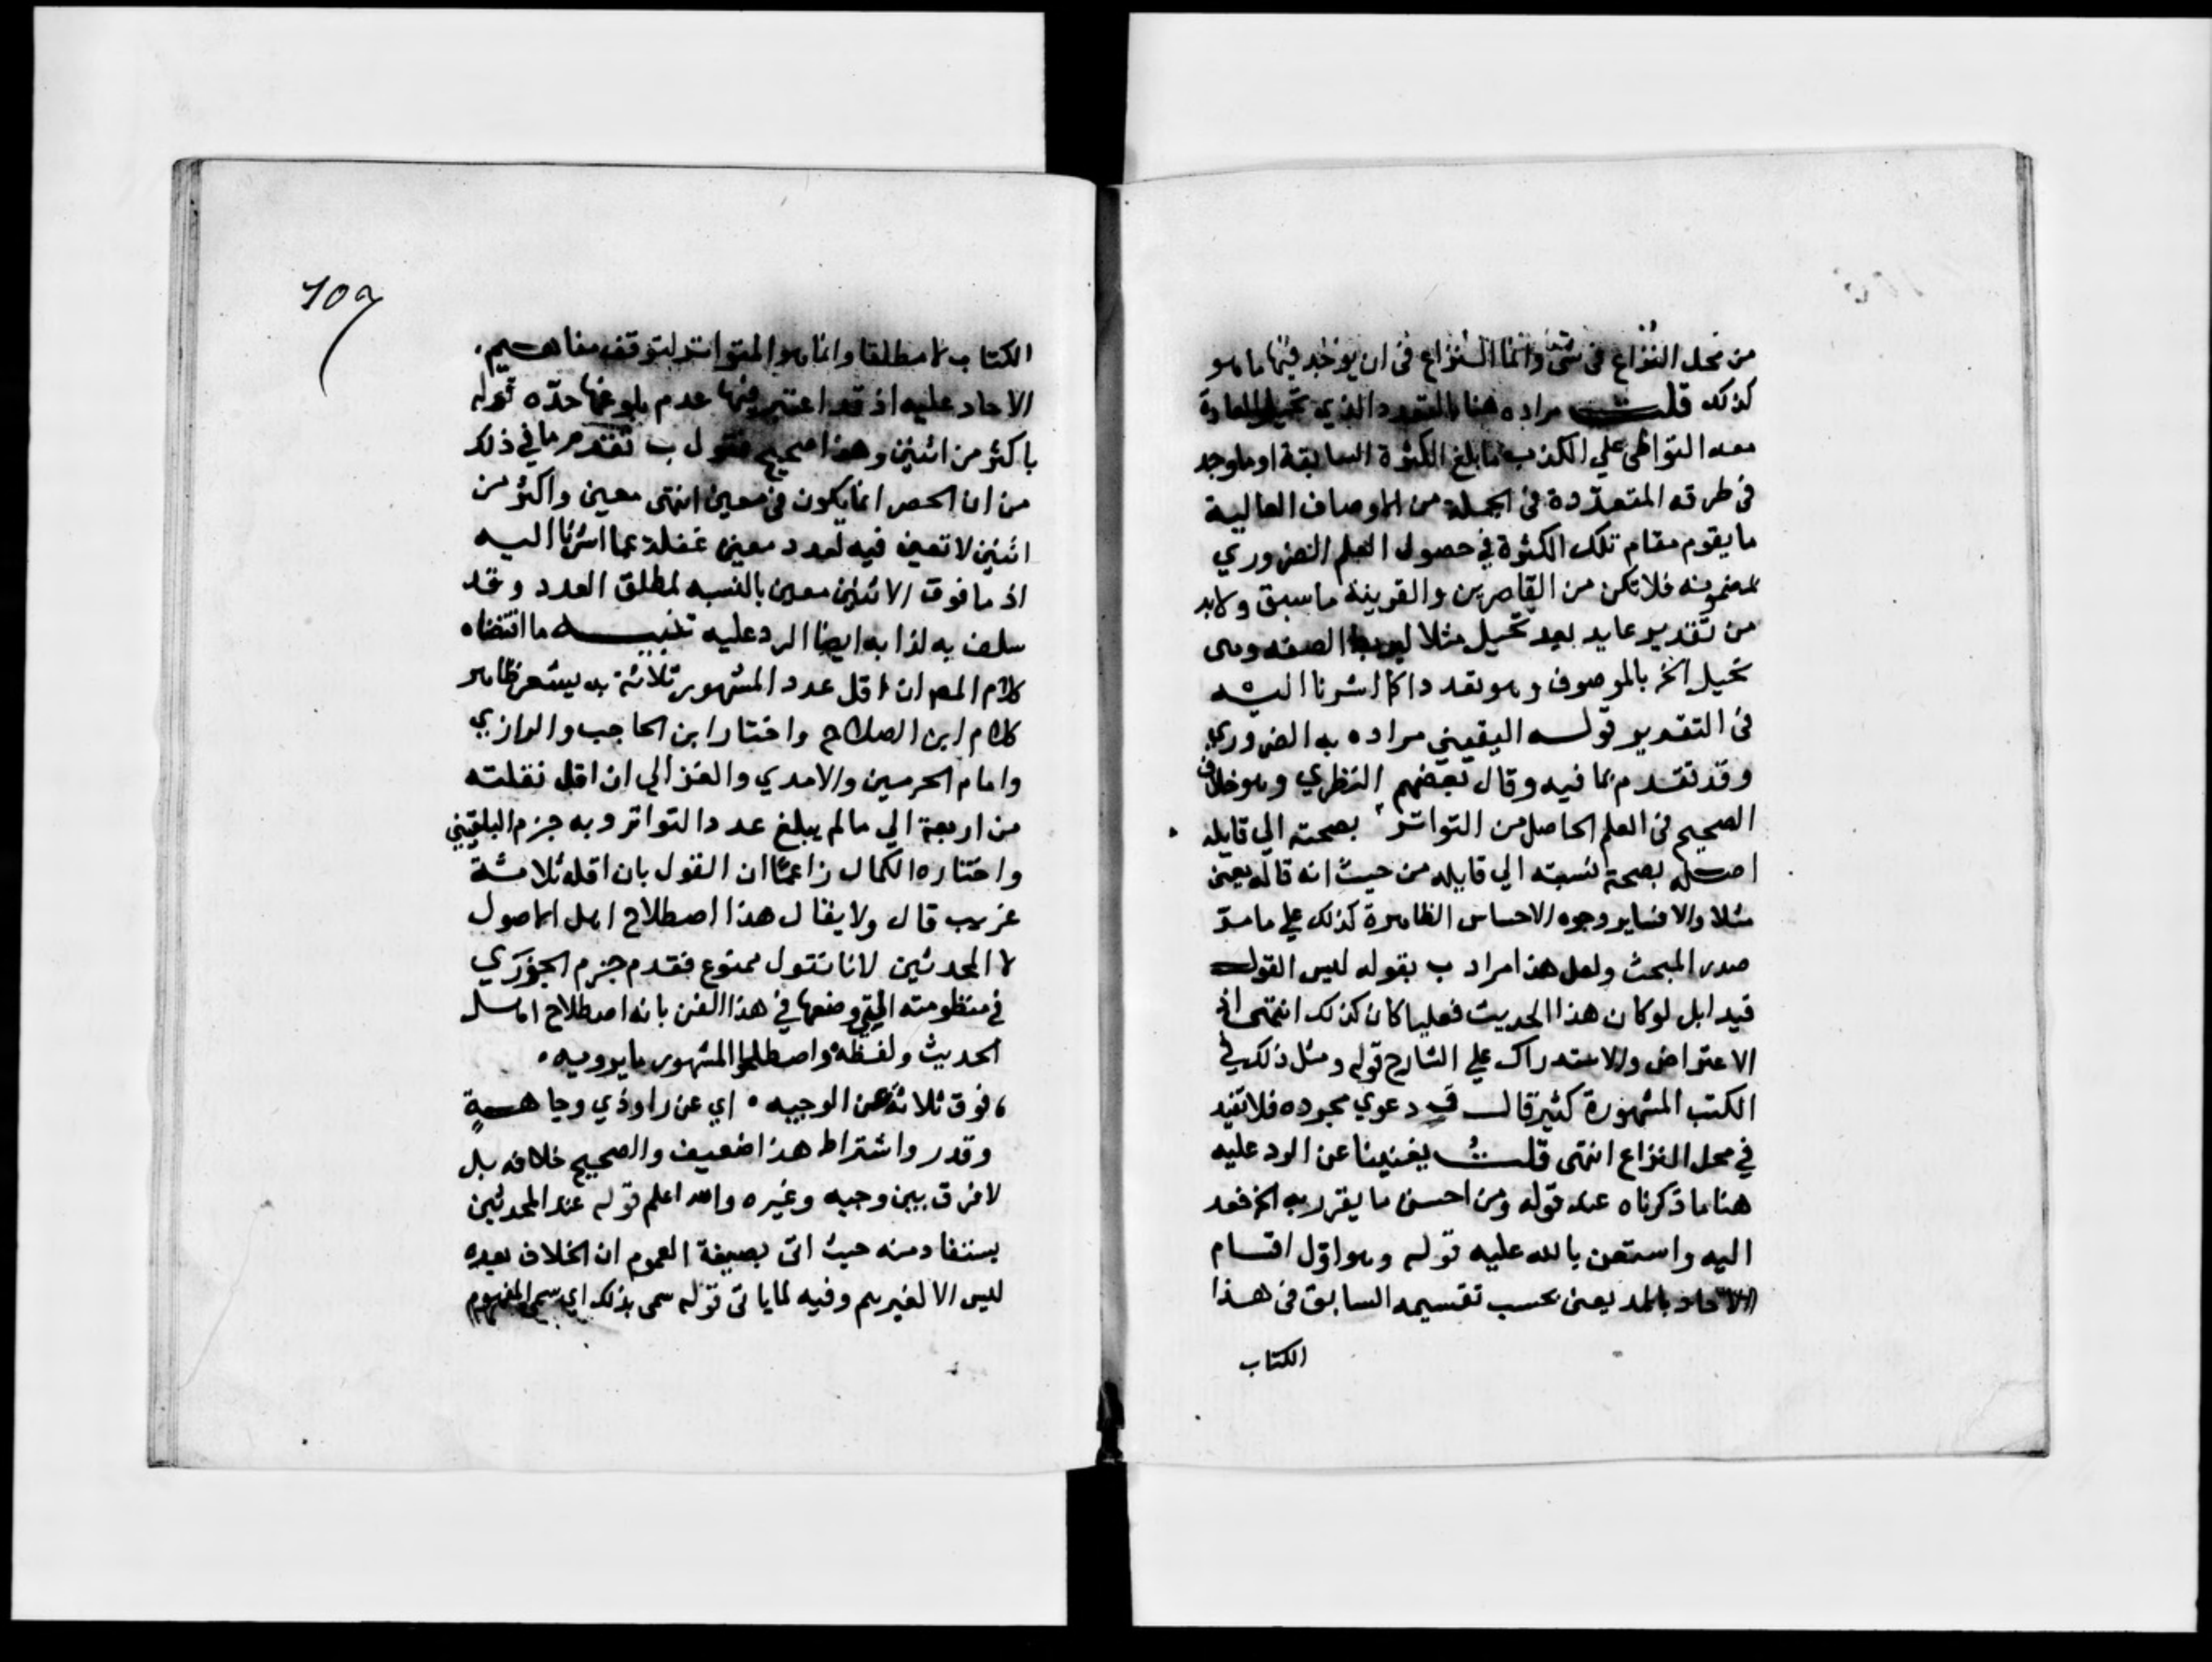 من محل النزاع فى شئ وانما النزاع فى ان يوخذ فيها ما هو
كذلك قلت مراده هنا بالتعدد الذي تحيل العادة
معه التواطى علي الكذب ما بلغ الكثرة السابقة او ما وجد
فى طرقه المتعددة فى الجملة من الاوصاف العالية
ما يقوم مقام تلك الكثرة في حصول العلم الضروري
لمضمونه فلا تكن من القاصرين والقرينة ما سبق ولا بد
من تقدير عايد بعد تحيل مثلا ليربط الصفه وهى
تحيل الخ بالموصوف وهو تعدد ذا كما اشرنا اليه
فى التقدير قوله اليقيني مراده به الضروري
وقد تقدم ما فيه وقال بعضهم النظري وهو خلاف
الصحيح فى العلم الحاصل من التواتر بصحته الي قايله
اصله بصحة نسبته الي قايله من حيث انه قاله يعنى
مثلا والا فساير وجوه الاحساس الظاهرة كذلك علي ما مر
صدر المبحث ولعل هذا مراد ب بقوله ليس القول
قيدا بل لو كان هذا الحديث فعليا كان كذلك انتهى اذ
الاعتراض والاستدراك علي الشارح قوله ومثل ذلك في
الكتب المشهورة كثير قال ق دعوي مجرده فلا تفيد
في محل النزاع انتهى قلت يغنينا عن الرد عليه
هنا ما ذكرناه عند قوله ومن احسن ما يقرر به الخ فعد
اليه واستعن بالله عليه قوله وهو اول اقسام
الآحاد بالمد يعنى بحسب تقسيمه السابق فى هذا
الكتاب
107
الكتاب لا مطلقا وانما هو المتواتر لتوقف مفاهيم
الاحاد عليه اذ قد اعتبر فيها عدم بلوغها حده قوله
باكثر من اثنين وهذا صحيح فقول ب تقدم ما في ذلك
من ان الحصر انما يكون فى معين انتهى معين واكثر من
اثنين لا تعين فيه لعدد معين غفلة عما اشرنا اليه
اذ ما فوق الاثنين معين بالنسبه لمطلق العدد وقد
سلف به لذا به ايضا الرد عليه تنبيه ما اقتضاه
كلام المص ان اقل عدد المشهور ثلاثة به يشعر ظاهر
كلام ابن الصلاح واختار ابن الحاجب والرازي
وامام الحرمين والامدي والغزالي ان اقل نقلته
من اربعة الي ما لم يبلغ عدد التواتر وبه جزم البلقيني
واختاره الكمال زاعما ان القول بان اقله ثلاثة
غريب قال ولا يقال هذا اصطلاح اهل الاصول
لا المحدثين لانا نقول ممنوع فقدم جزم الجزري
في منظومته التي وضعها في هذا الفن بانه اصطلاح اهل
الحديث ولفظه واصطلحوا المشهور ما يرويه
فوق ثلاثة عن الوجيه اي عن راو ذي وجاهة
وقدر واشتراط هذا ضعيف والصحيح خلافه بل
لا فرق بين وجيه وغيره والله اعلم قوله عند المحدثين
يستفاد منه حيث اتى بصيغة العموم ان الخلاف بعده
ليس الا لغيرهم وفيه لما ياتى قوله سمى بذلك اي سمى المفهوم